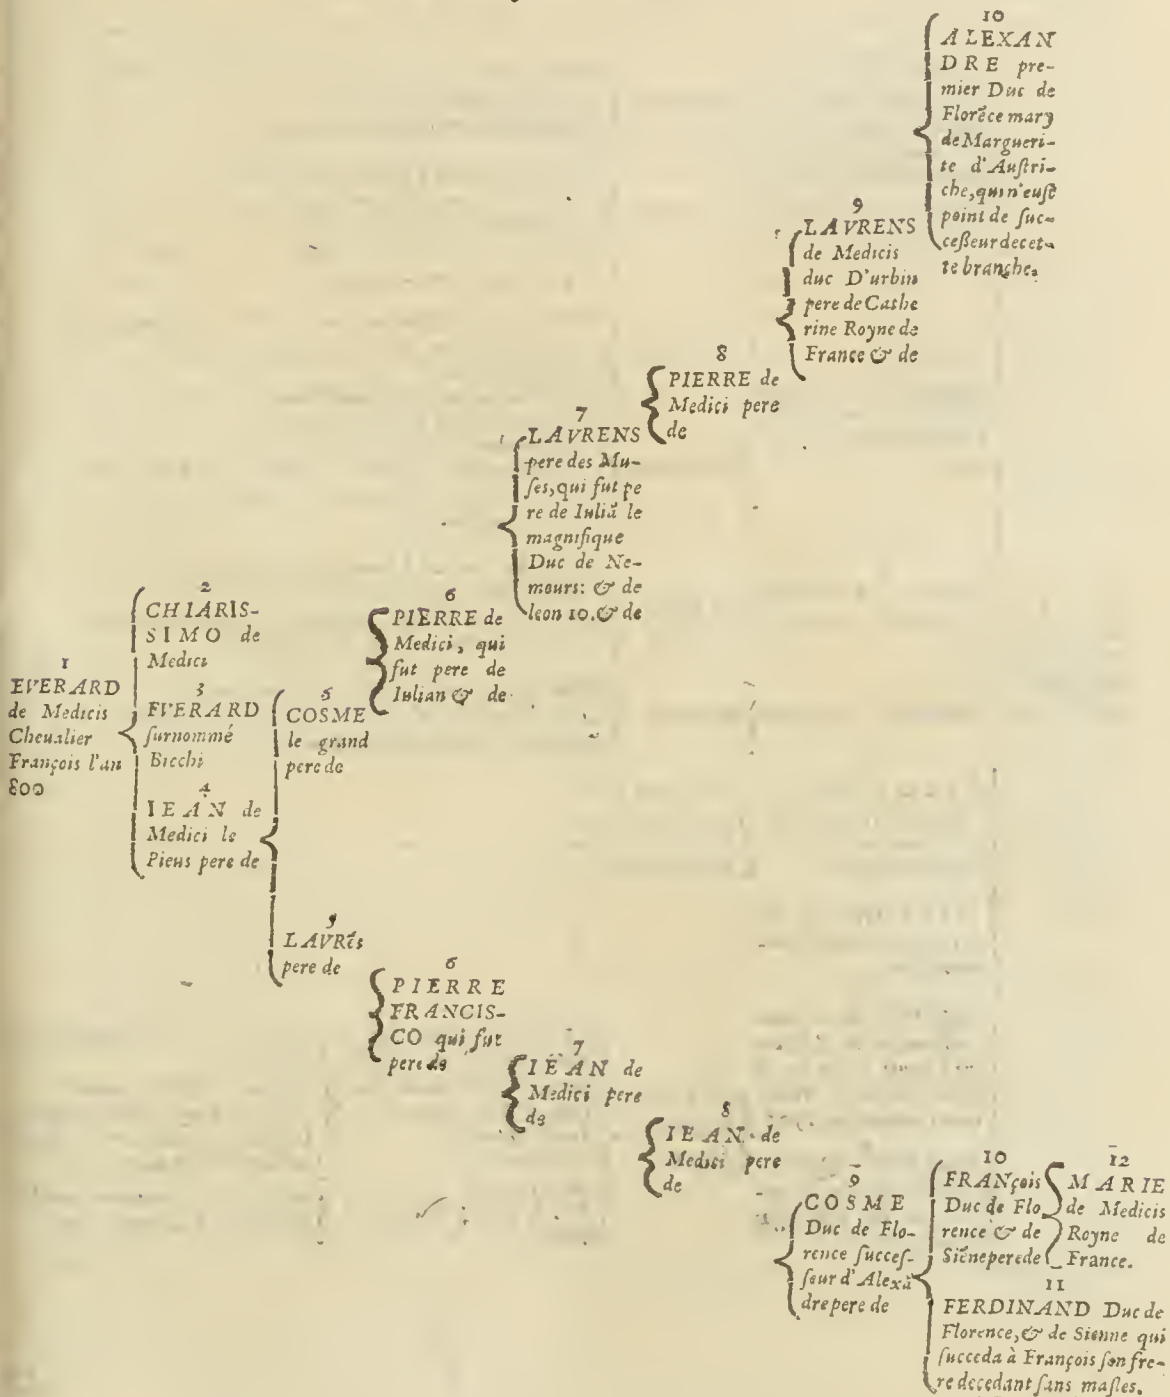 1
EVERARD
de Medicis
Cheualier
François l'an
800
2
CHIARIS-
SIMO de
Medici
3
EVERARD
ſurnommé
Bicchi
4
IEAN de
Medici le
Pieus pere de
5
COSME
le grand
pere de
5
LAVRẽs
pere de
6
PIERRE de
Medici, qui
fut pere de
Iulian & de
7
LAVRENS
pere des Mu-
ſes, qui fut pe
re de Iuliã le
magnifique
Duc de Ne-
mours: & de
leon 10. & de
8
PIERRE de
Medici pere
de
9
LAVRENS
de Medicis
duc D'urbin
pere de Cathe
rine Royne de
France & de
10
ALEXAN
DRE pre-
mier Duc de
Florẽce mary
de Margueri-
te d'Auſtri-
che, qui n'euſt
point de ſuc-
ceßeur de cet-
te branche.
6
PIERRE
FRANCIS-
CO qui fut
pere de
7
IEAN de
Medici pere
de
8
IEAN de
Medici pere
de
9
COSME
Duc de Flo-
rence ſucceſ-
ſeur d'Alexã
dre pere de
10
FRANçois
Duc de Flo
rence & de
Siẽne pere de
12
MARIE
de Medicis
Royne de
France.
11
FERDINAND Duc de
Florence, & de Sienne qui
ſucceda à François ſon fre-
re decedant ſans maſles.